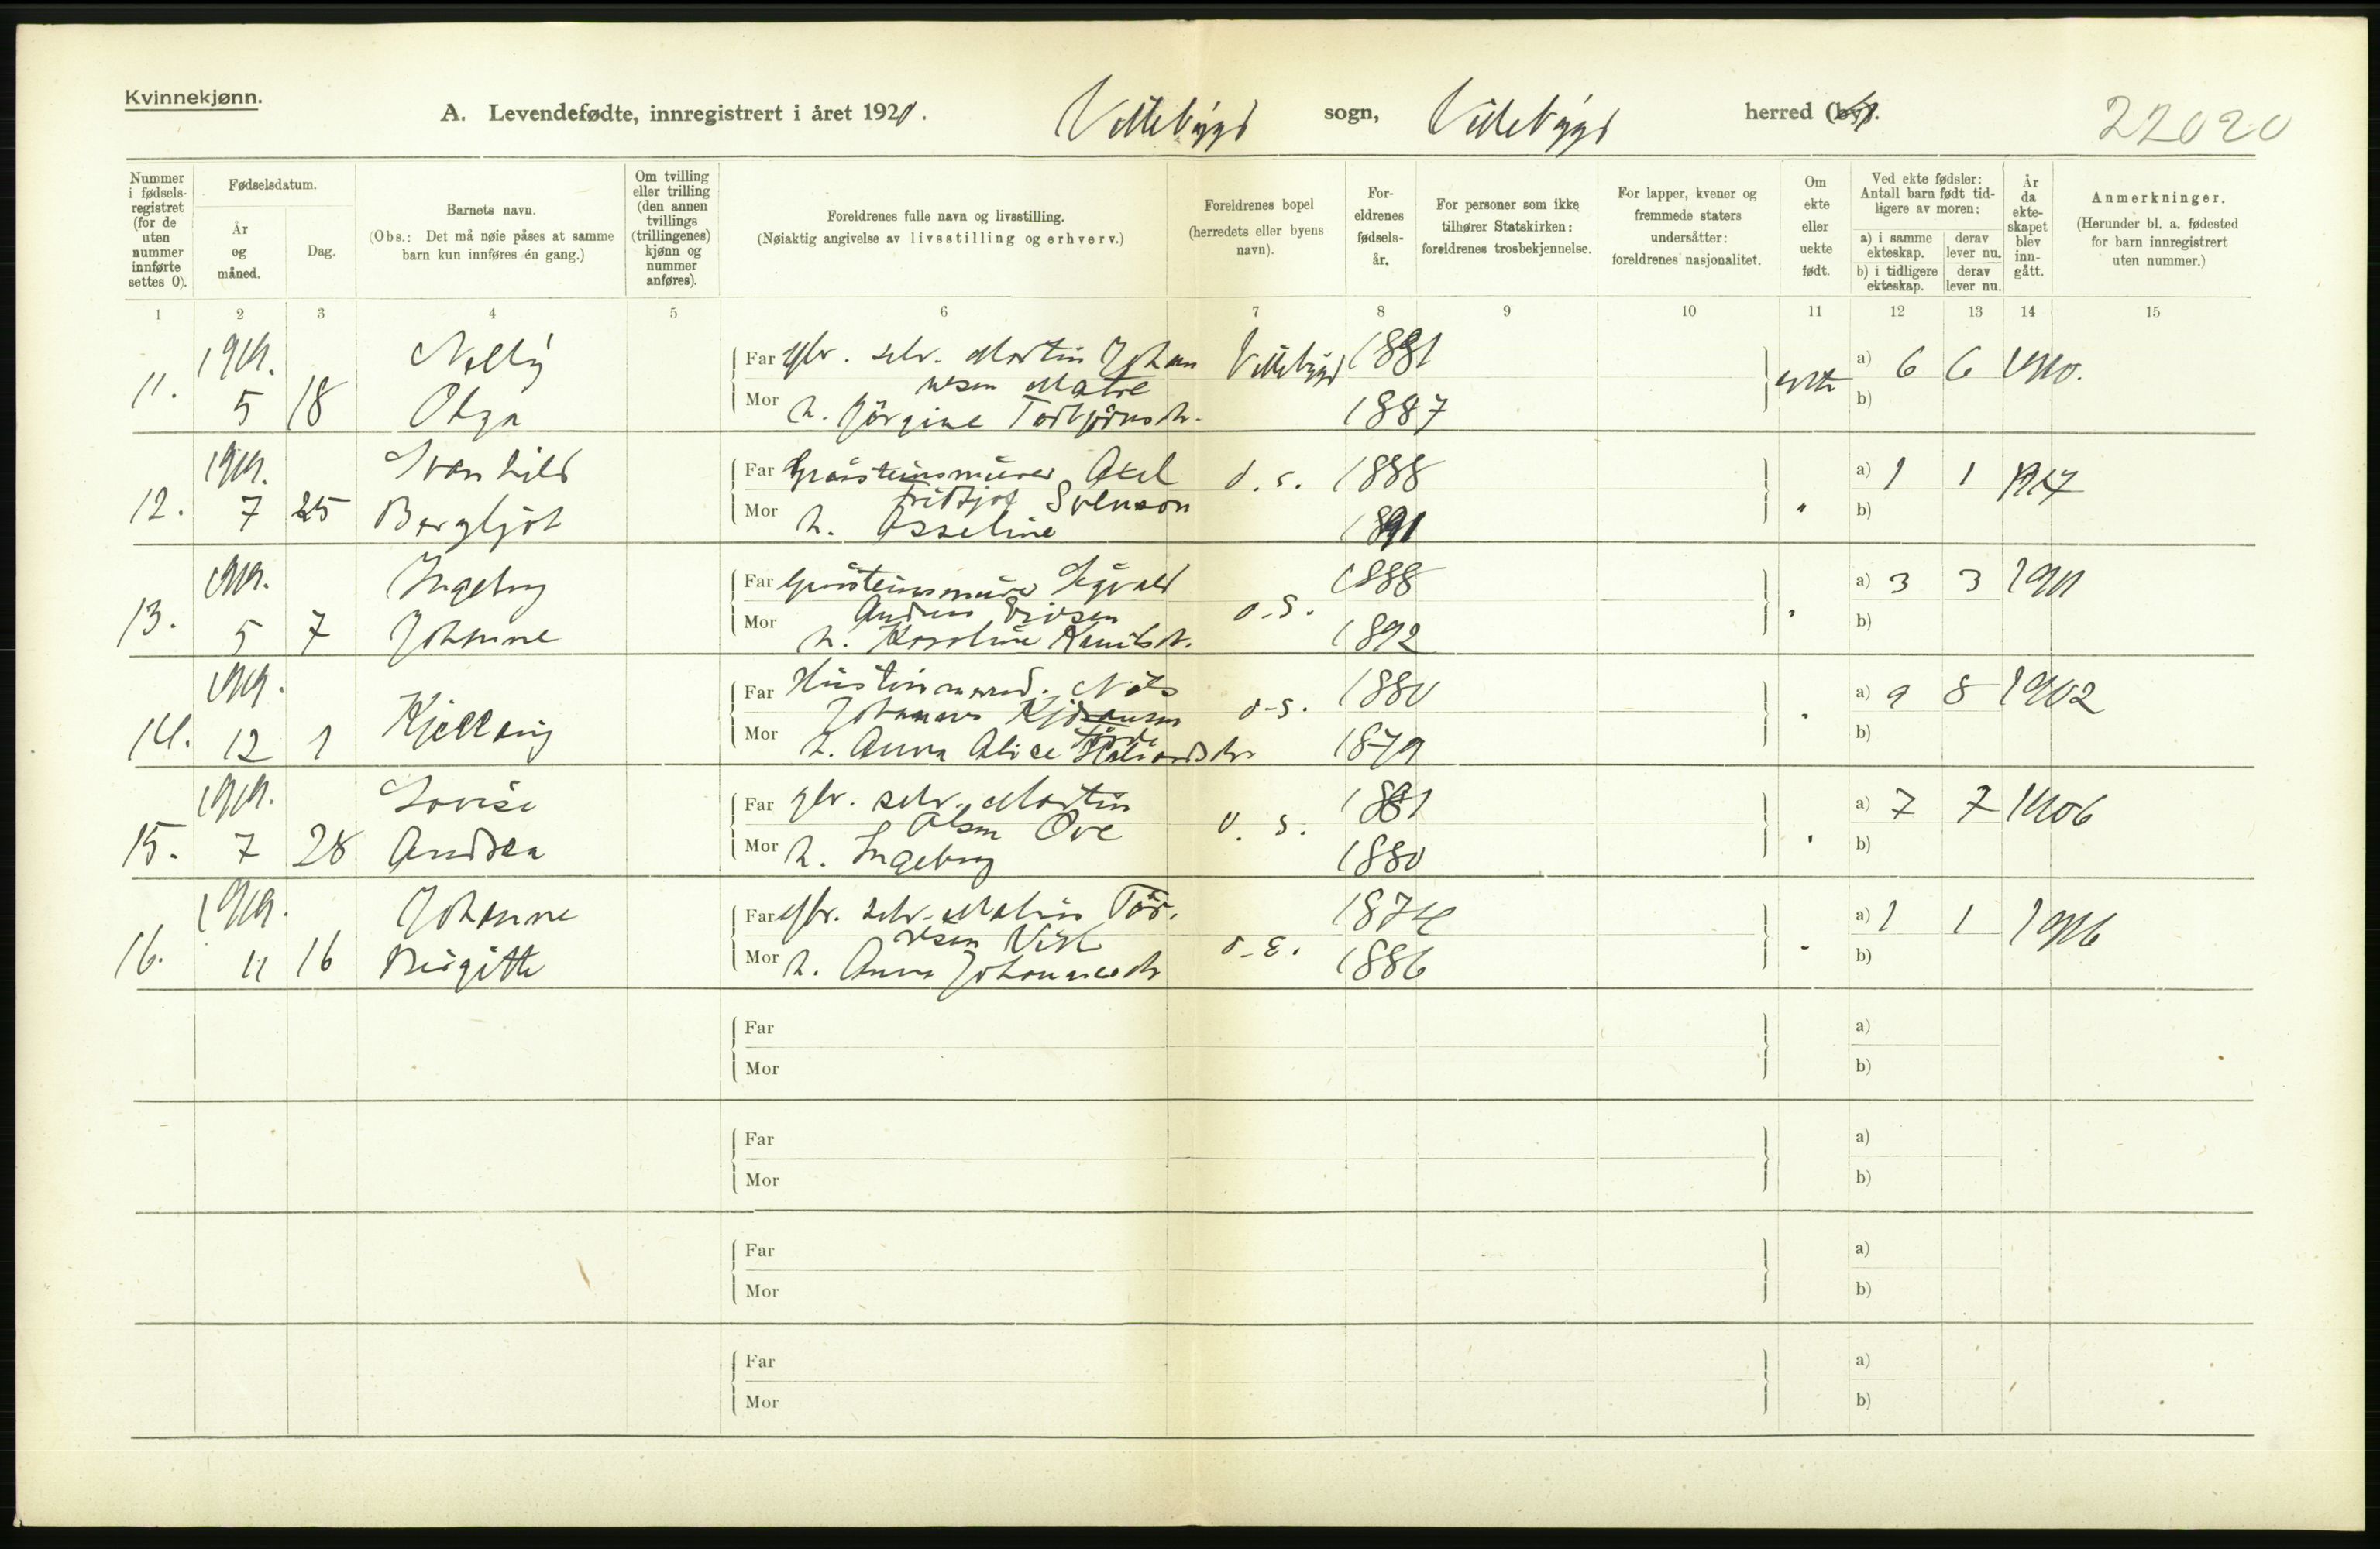 Kvinnekjønn.
A. Levendefødte, innregistrert i året 1920. Vikebygd sogn, Vikebygd herred (by).
22020
Nummer i fødselsregistret (for de uten nummer innførte settes 0).
Fødselsdatum.
År og måned.
Dag.
Barnets navn.
(Obs.: Det må nøie påses at samme barn kun innføres én gang.)
Om tvilling eller trilling (den annen tvillings (trillingenes) kjønn og nummer anføres).
Foreldrenes fulle navn og livsstilling.
(Nøiaktig angivelse av livsstilling og erhverv.)
Foreldrenes bopel (herredets eller byens navn).
Foreldrenes fødselsår.
For personer som ikke tilhører Statskirken: foreldrenes trosbekjennelse.
For lapper, kvener og fremmede staters undersåtter: foreldrenes nasjonalitet.
Om ekte eller uekte født.
Ved ekte fødsler: Antall barn født tidligere av moren:
a) i samme ekteskap.
derav lever nu.
b) i tidligere ekteskap.
derav lever nu.
År da ekteskapet blev inngått.
Anmerkninger.
(Herunder bl. a. fødested for barn innregistrert uten nummer.)
1 2 3 4 5 6 7 8 9 10 11 12 13 14 15
1919. Nelly Far gbr. selv. Martin Johan Vikebygd 1881 ekte a) 6 6 1910.
11. 5 18 Olga nesen Matre
Mor h. Jörgine Torbjørnsdr. 1887 b)
1919. Svanhild Far Gråsteinsmurer Axel d. s. 1888 " a) 1 1 1917
12. 7 25 Bergljot Fridtjof Svenson
Mor h. Osseline 1891 b)
1919. Ingeborg Far Gråsteinsmurer Sigvald d.s. 1888 " a) 3 3 1911
13. 5 7 Johanne Andreas
Mor h. Karoline Knutsdr. 1892 b)
1919. Kjellaug Far Nils d.s. 1880 " a) 9 8 1902
14. 12 1 Johannes
Mor h. Anna Alice 1879 b)
1919. Lovise Far gbr. selv. Martin d. s. 1881 " a) 7 7 1906
15. 7 28 Andrea Olsen Øve
Mor h. Ingeborg 1880 b)
1919. Johanne Far gbr. selv. Malin Tor. d.s. 1874 " a) 1 1 1916
16. 11 16 Birgitte
Mor h. Anna Johannesdr 1886 b)
Far a)
Mor b)
Far a)
Mor b)
Far a)
Mor b)
Far a)
Mor b)